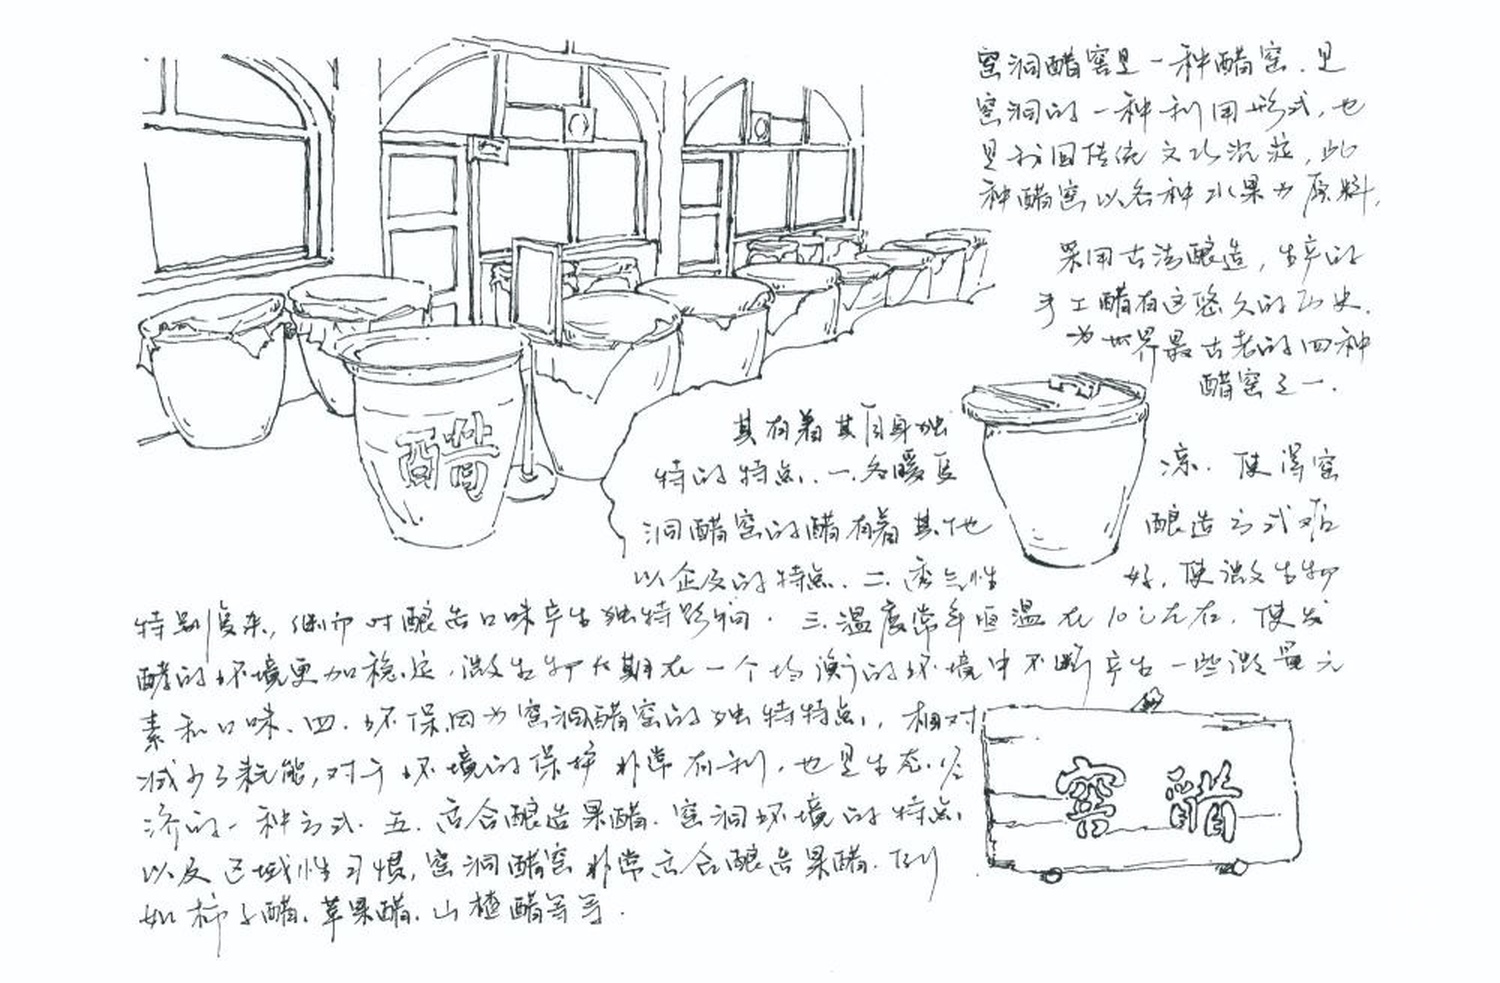 窑洞醋窖是一种醋窑.是
窑洞的一种利用形式,也
是我国传统文化沉淀,此
种醋窑以各种水果为原料,
采用古法酿造,生产的
手工醋有这悠久的历史.
为世界最古老的四种
醋窑之一.
其有着其自身独
特的特点.一.冬暖夏
凉.使得窑
洞醋窑的醋有着其他
酿造方式难
以企及的特点.二.透气性
好,使微生物
特别复杂,继而对酿造口味产生独特影响.三.温度常年恒温在10℃左右,使发
酵的环境更加稳定,微生物长期在一个均衡的环境中不断产生一些微量元
素和口味.四.环保,因为窑洞醋窑的独特特点,相对
减少了耗能,对于环境的保护非常有利,也是生态经
济的一种方式.五.适合酿造果醋.窑洞环境的特点
以及区域性习惯,窑洞醋窑非常适合酿造果醋.例
如柿子醋.苹果醋.山楂醋等等.
醋
窖醋